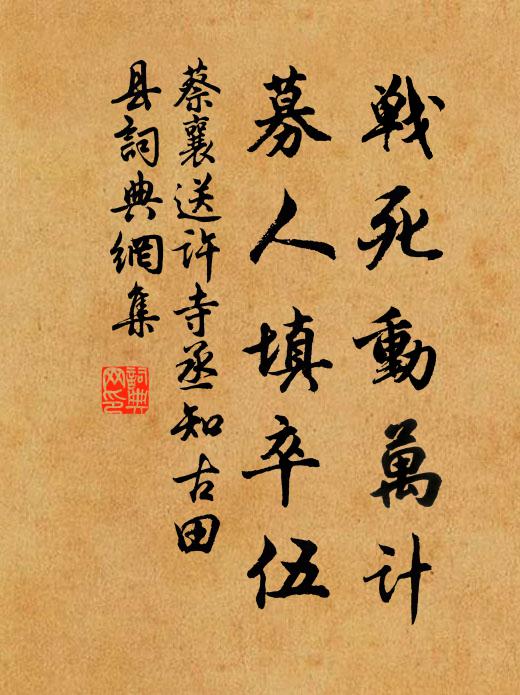 戦死動萬計
募人填卒伍
蔡襄送許寺丞知古田
县詞典網集
詞典
网印